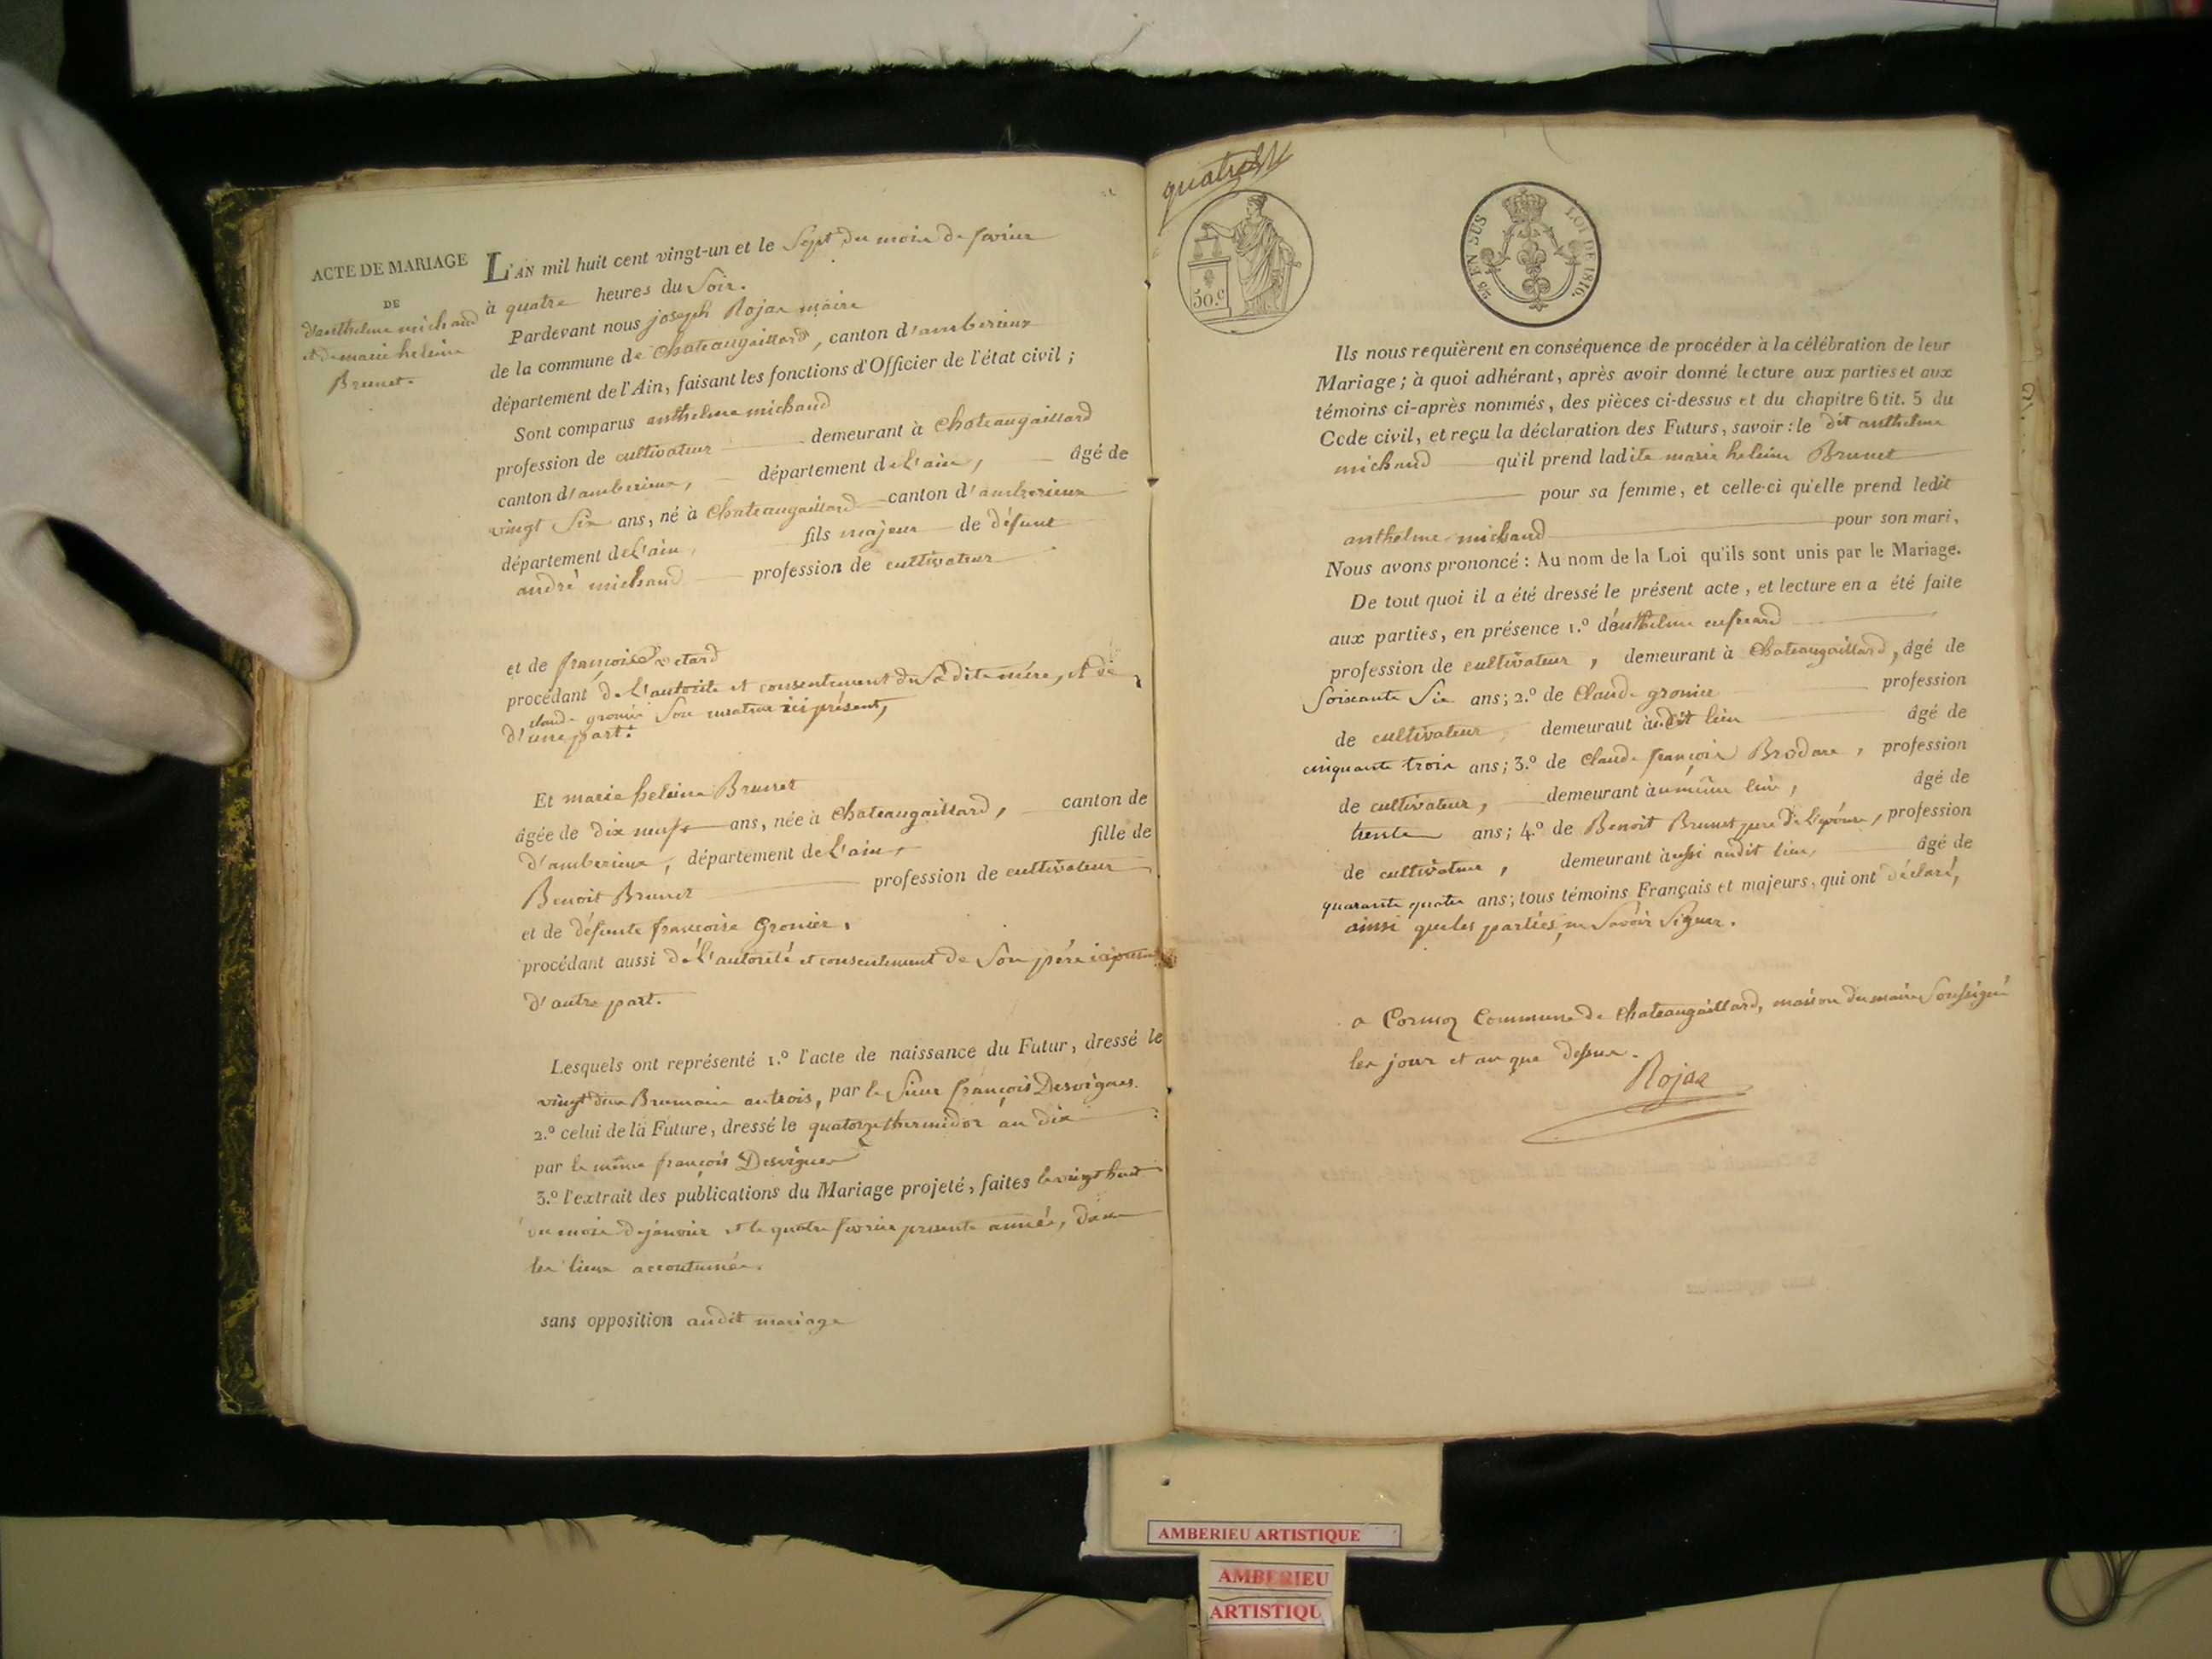 ACTE DE MARIAGE
DE
d'anthelme michaud
et de marie heleine
Brunet.
L'AN mil huit cent vingt-un et le Sept du moie de fevrier
à quatre heures du Soir.
Pardevant nous joseph Rojae maire
de la commune de Chateaugaillard, canton d'amberieux
département de l'Ain, faisant les fonctions d'Officier de l'état civil ;
Sont comparus anthelme michaud
profession de cultivateur demeurant à Chateaugaillard
canton d'amberieux, département de L'ain, âgé de
vingt Six ans, né à Chateaugaillard canton d'amberieux
département de L'ain, fils majeur de défunt
andré michaud profession de cultivateur
et de françoise
procédant de L'autorité et consentement du Sa dite mére, et de
claude gronier Son curateur ici présent,
d'une part.
Et marie heleine Brunet
âgée de dix neuf ans, née à Chateaugaillard, canton de
d'amberieux, département de L'ain, fille de
Benoit Brunet profession de cultivateur
et de défunte françoise Gronier,
procédant aussi de L'autorité et consentement de Son pére
d'autre part.
Lesquels ont représenté 1.º l'acte de naissance du Futur, dressé le
vingt deux Brumaire an trois, par le Sieur françois Desvignes.
2.º celui de la Future, dressé le quatorze thermidor an dix
par le même françois Desvignes
3.º l'extrait des publications du Mariage projeté, faites le vingt huit
du moie de janvier et le quatre fevrier presente année, dans
les lieux accoutumés.
sans opposition audit mariage
quatre
50.c
25 EN SUS
LOI DE 1816.
Ils nous requièrent en conséquence de procéder à la célébration de leur
Mariage ; à quoi adhérant, après avoir donné lecture aux parties et aux
témoins ci-après nommés, des pièces ci-dessus et du chapitre 6 tit. 5 du
Code civil, et reçu la déclaration des Futurs, savoir : le dit anthelme
michaud qu'il prend ladite marie heleine Brunet
pour sa femme, et celle-ci qu'elle prend ledit
anthelme michaud pour son mari,
Nous avons prononcé : Au nom de la Loi qu'ils sont unis par le Mariage.
De tout quoi il a été dressé le présent acte, et lecture en a été faite
aux parties, en présence 1.º d'anthelme
profession de cultivateur, demeurant à Chateaugaillard, âgé de
Soixante Six ans ; 2.º de Claude gronier profession
de cultivateur, demeurant audit lieu âgé de
cinquante trois ans ; 3.º de Claude françois Brodare, profession
de cultivateur, demeurant au même lieu, âgé de
trente ans ; 4.º de Benoit Brunet pere de l'épouse, profession
de cultivateur, demeurant aussi audit lieu, âgé de
quarante quatre ans ; tous témoins Français et majeurs, qui ont déclaré,
ainsi que les parties, ne Savoir Signer.
a Cormoz Commune de Chateaugaillard, maison du maire Soussigné
les jour et an que dessus.
Rojae
AMBERIEU ARTISTIQUE
AMBERIEU
ARTISTIQU